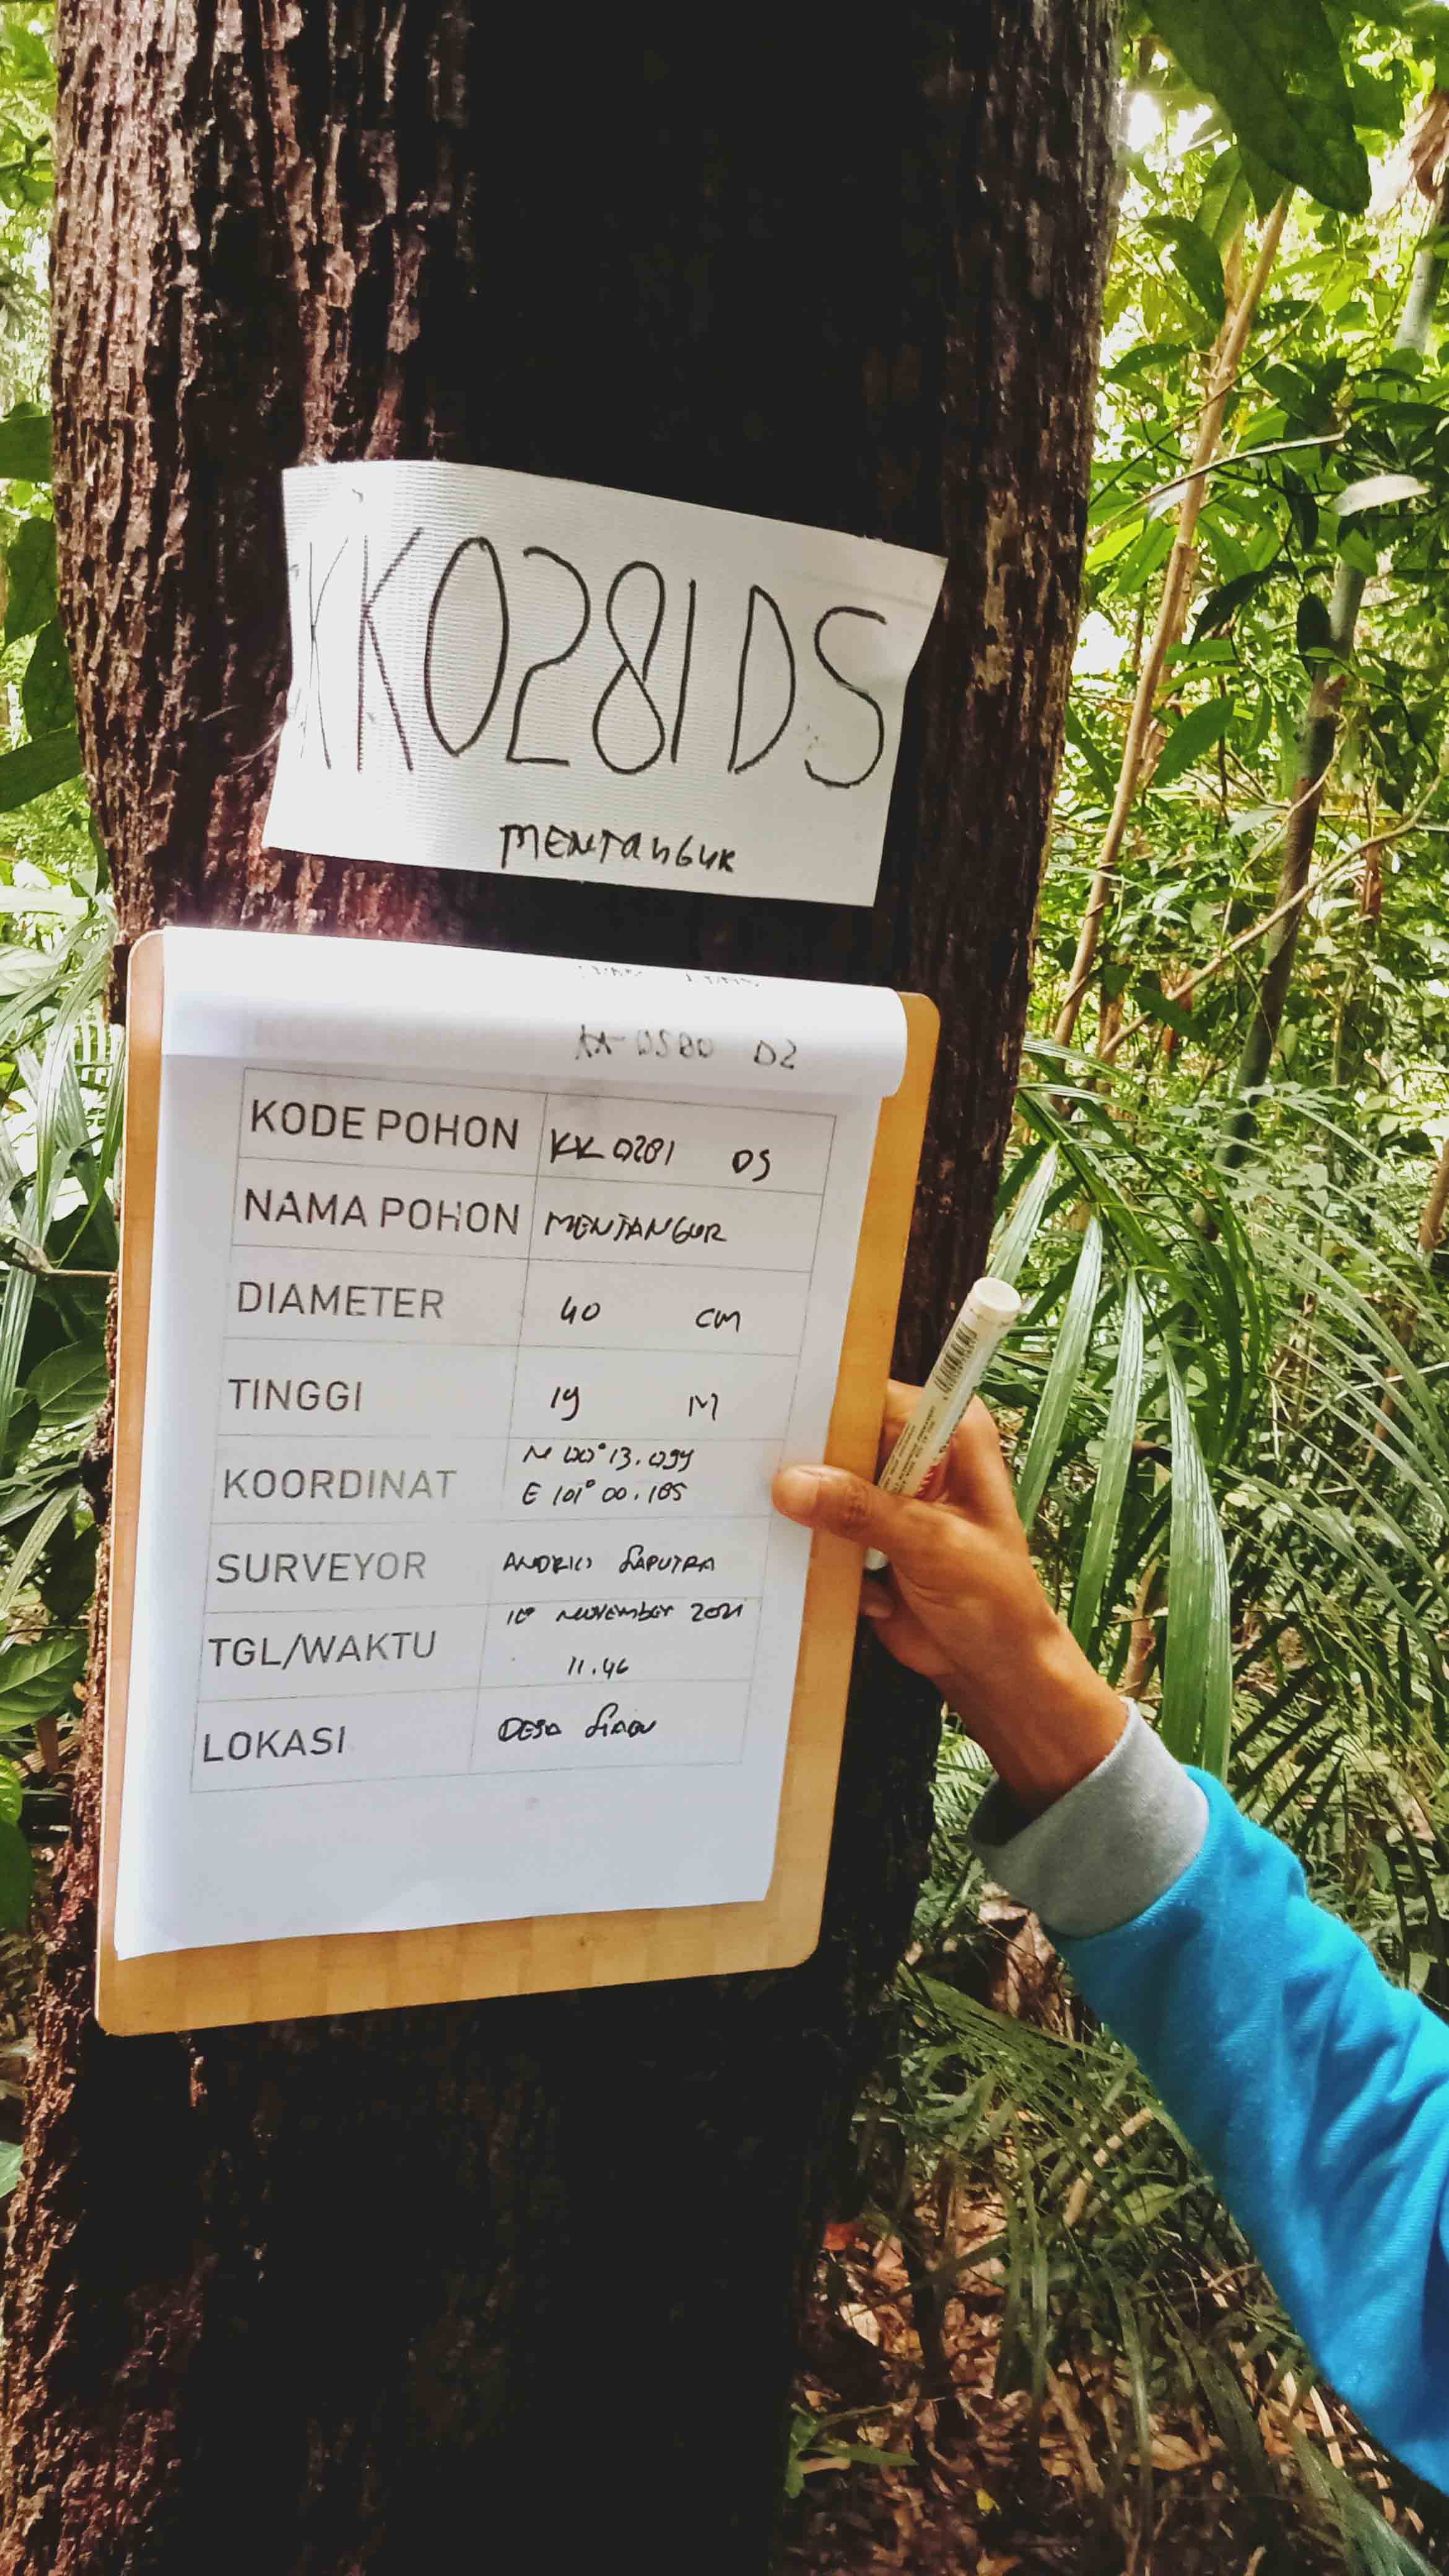 KK0281DS
MENTANGUK
KODE POHON KK 0281 DS
NAMA POHON MENTANGUR
DIAMETER 40 CM
TINGGI 19 M
KOORDINAT N 00° 13.099
E 101° 00.185
SURVEYOR SAPUTRA
TGL/WAKTU November 2021
11.46
LOKASI DESA